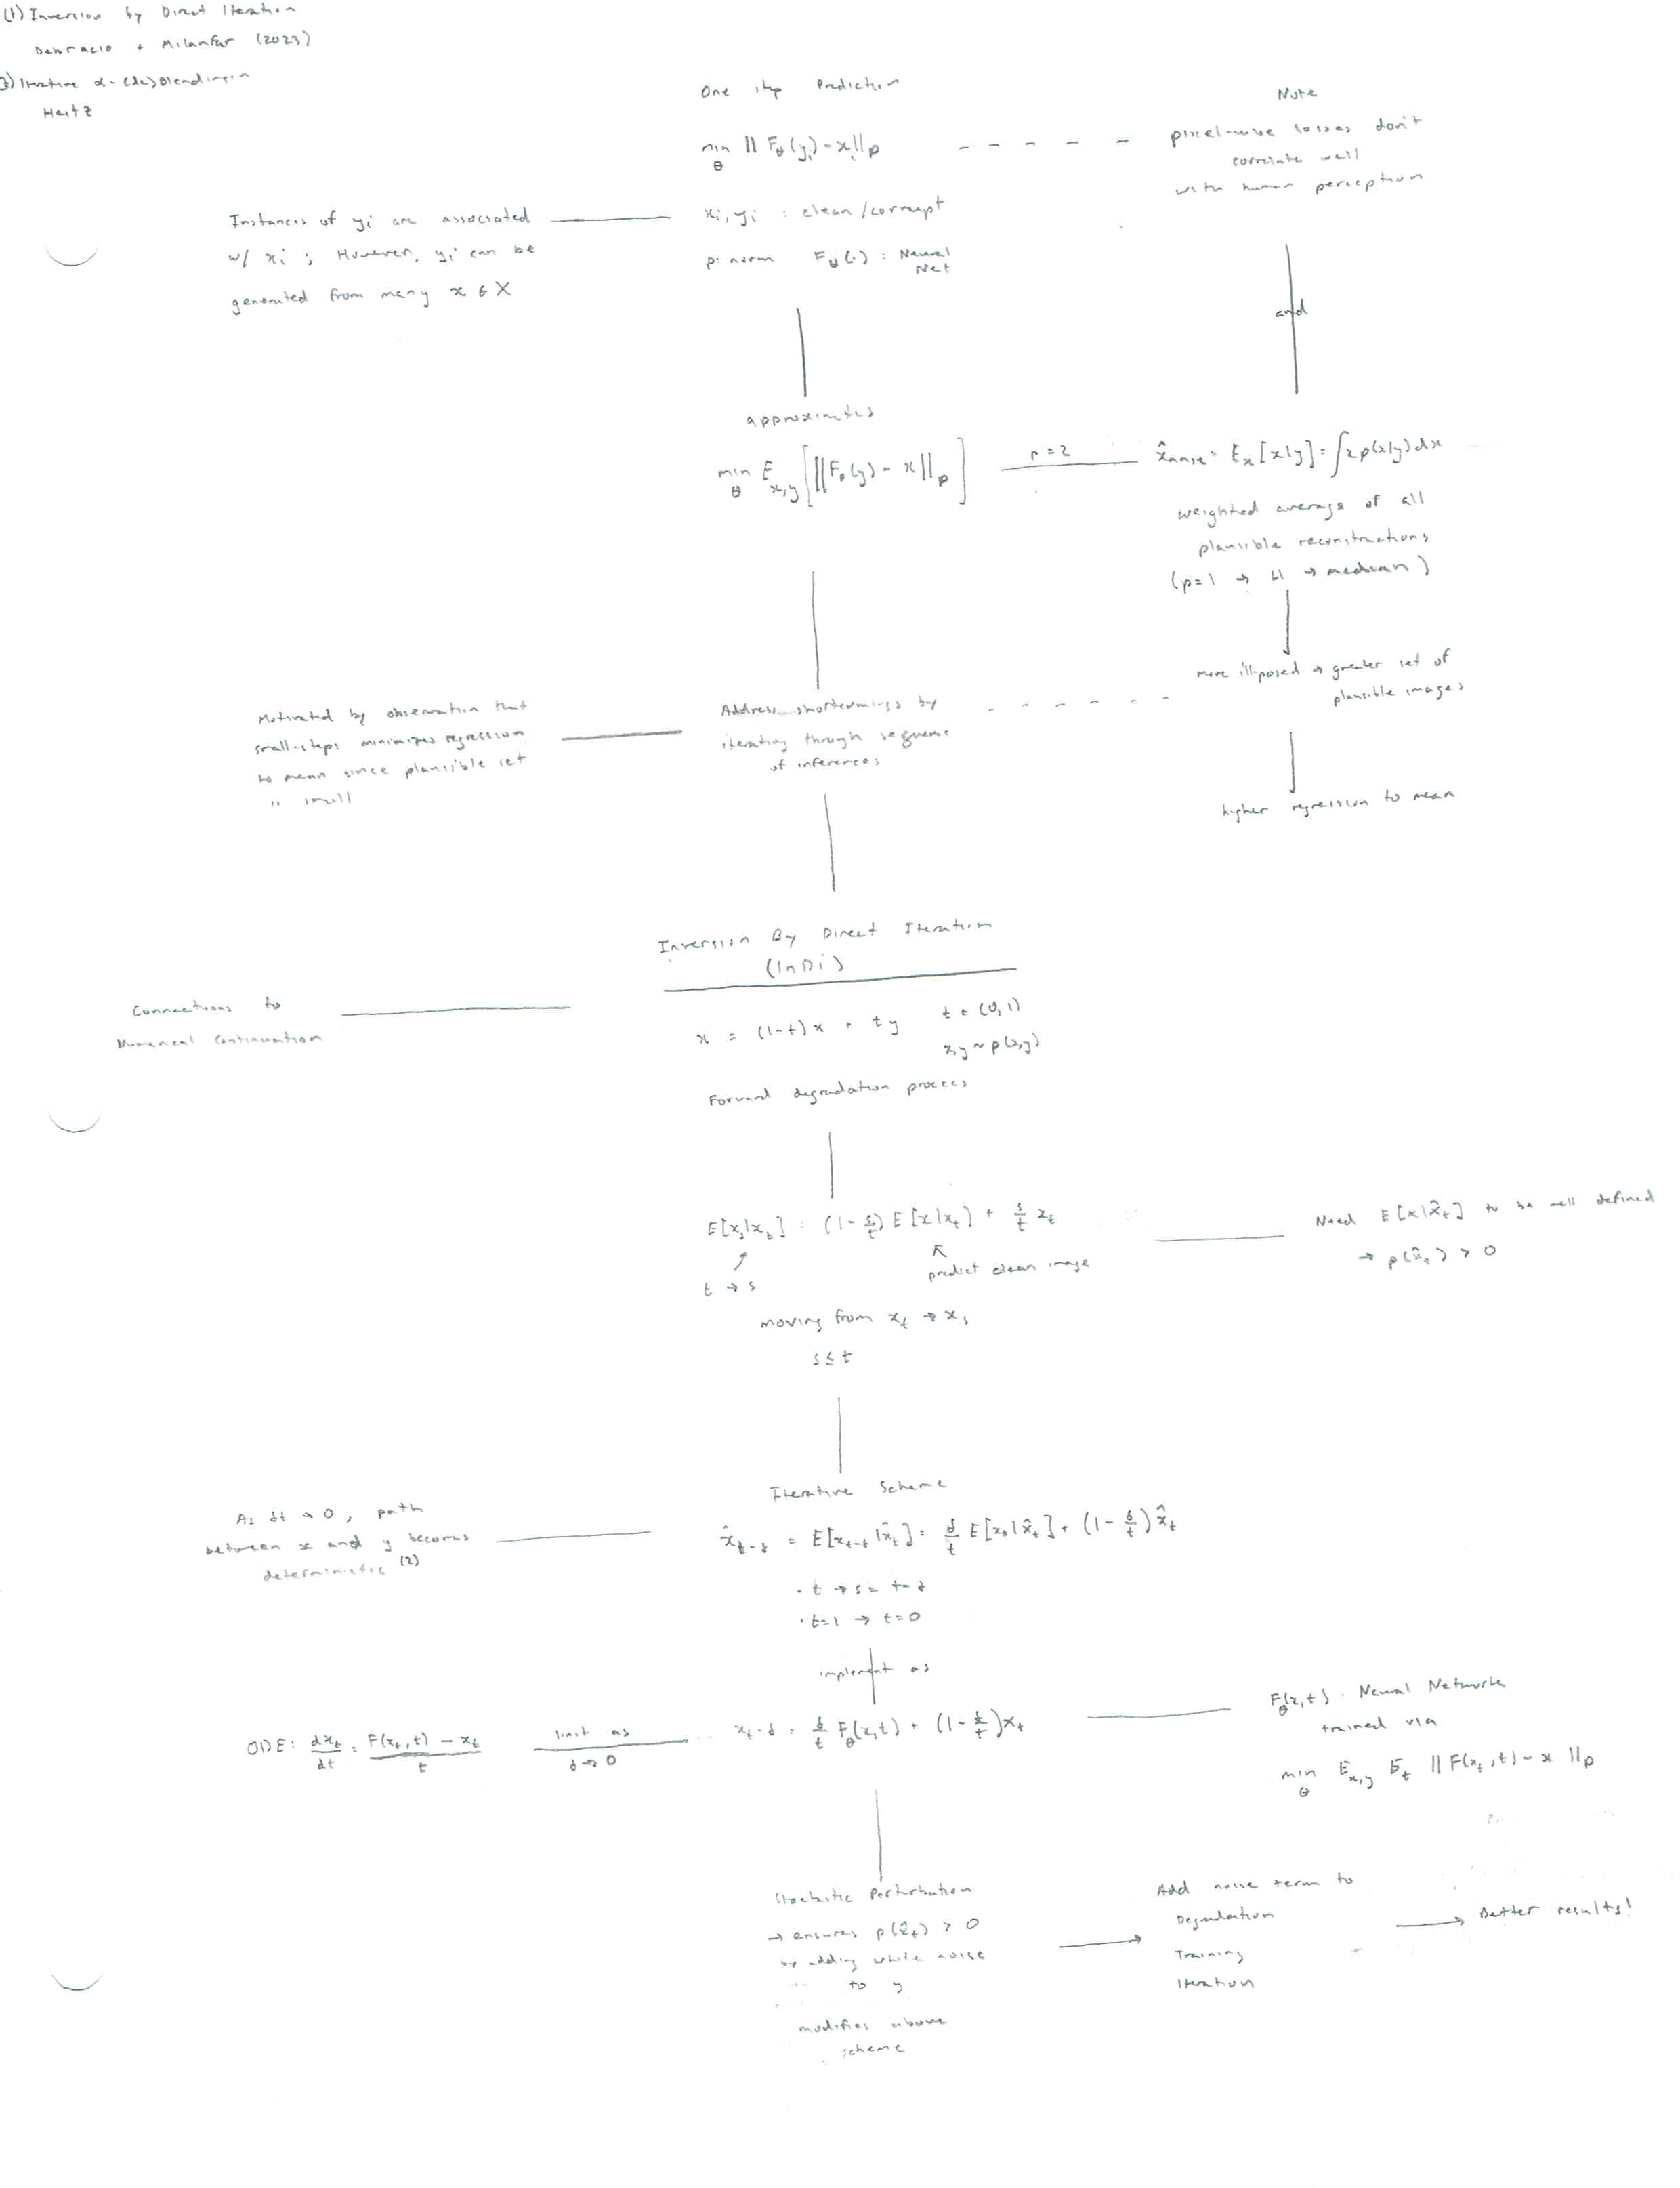 (1) Inversion by Direct Iteration
Delbracio + Milanfar (2023)
2) Iterative α-(de)Blending in
Heitz
One step Prediction
min_θ || F_θ(y_i) - x_i ||_p
x_i, y_i : clean/corrupt
p: norm F_θ(.) : Neural Net
Note
pixel-wise losses don't
correlate well
with human perception
Instances of y_i are associated
w/ x_i ; However, y_i can be
generated from many x ∈ X
and
approximates
min_θ E_{x,y} [ ||F_θ(y) - x||_p ]
p = 2
x̂_mmse = E_x[x|y] = ∫ x p(x|y) dx
weighted average of all
plausible reconstructions
(p=1 → L1 → median)
more ill-posed → greater set of
plausible images
higher regression to mean
Address shortcomings by
iterating through sequence
of inferences
Motivated by observation that
small-steps minimizes regression
to mean since plausible set
is small
Inversion By Direct Iteration
(InDi)
x = (1-t) x + t y t ∈ (0,1)
x,y ~ p(x,y)
Forward degradation process
Connections to
Numerical Continuation
E[x_s|x_t] = (1 - s/t) E[x|x_t] + s/t x_t
predict clean image
t → s
moving from x_t → x_s
s ≤ t
Need E[x|x̂_t] to be well defined
→ p(x̂_t) > 0
Iterative Scheme
x̂_{t-δ} = E[x_{t-δ}|x̂_t] = δ/t E[x_0|x̂_t] + (1 - δ/t) x̂_t
· t → s = t-δ
· t=1 → t=0
As δt → 0, path
between x and y becomes
deterministic (2)
implement as
x_{t-δ} = δ/t F_θ(x,t) + (1 - δ/t) x_t
limit as
δ → 0
ODE: dx_t/dt = F(x_t,t) - x_t / t
F_θ(x,t) : Neural Network
trained via
min_θ E_{x,y} E_t || F(x_t,t) - x ||_p
Stochastic Perturbation
→ ensures p(x̂_t) > 0
by adding white noise
to y
modifies above
scheme
Add noise term to
Degradation
Training
Iteration
Better results!